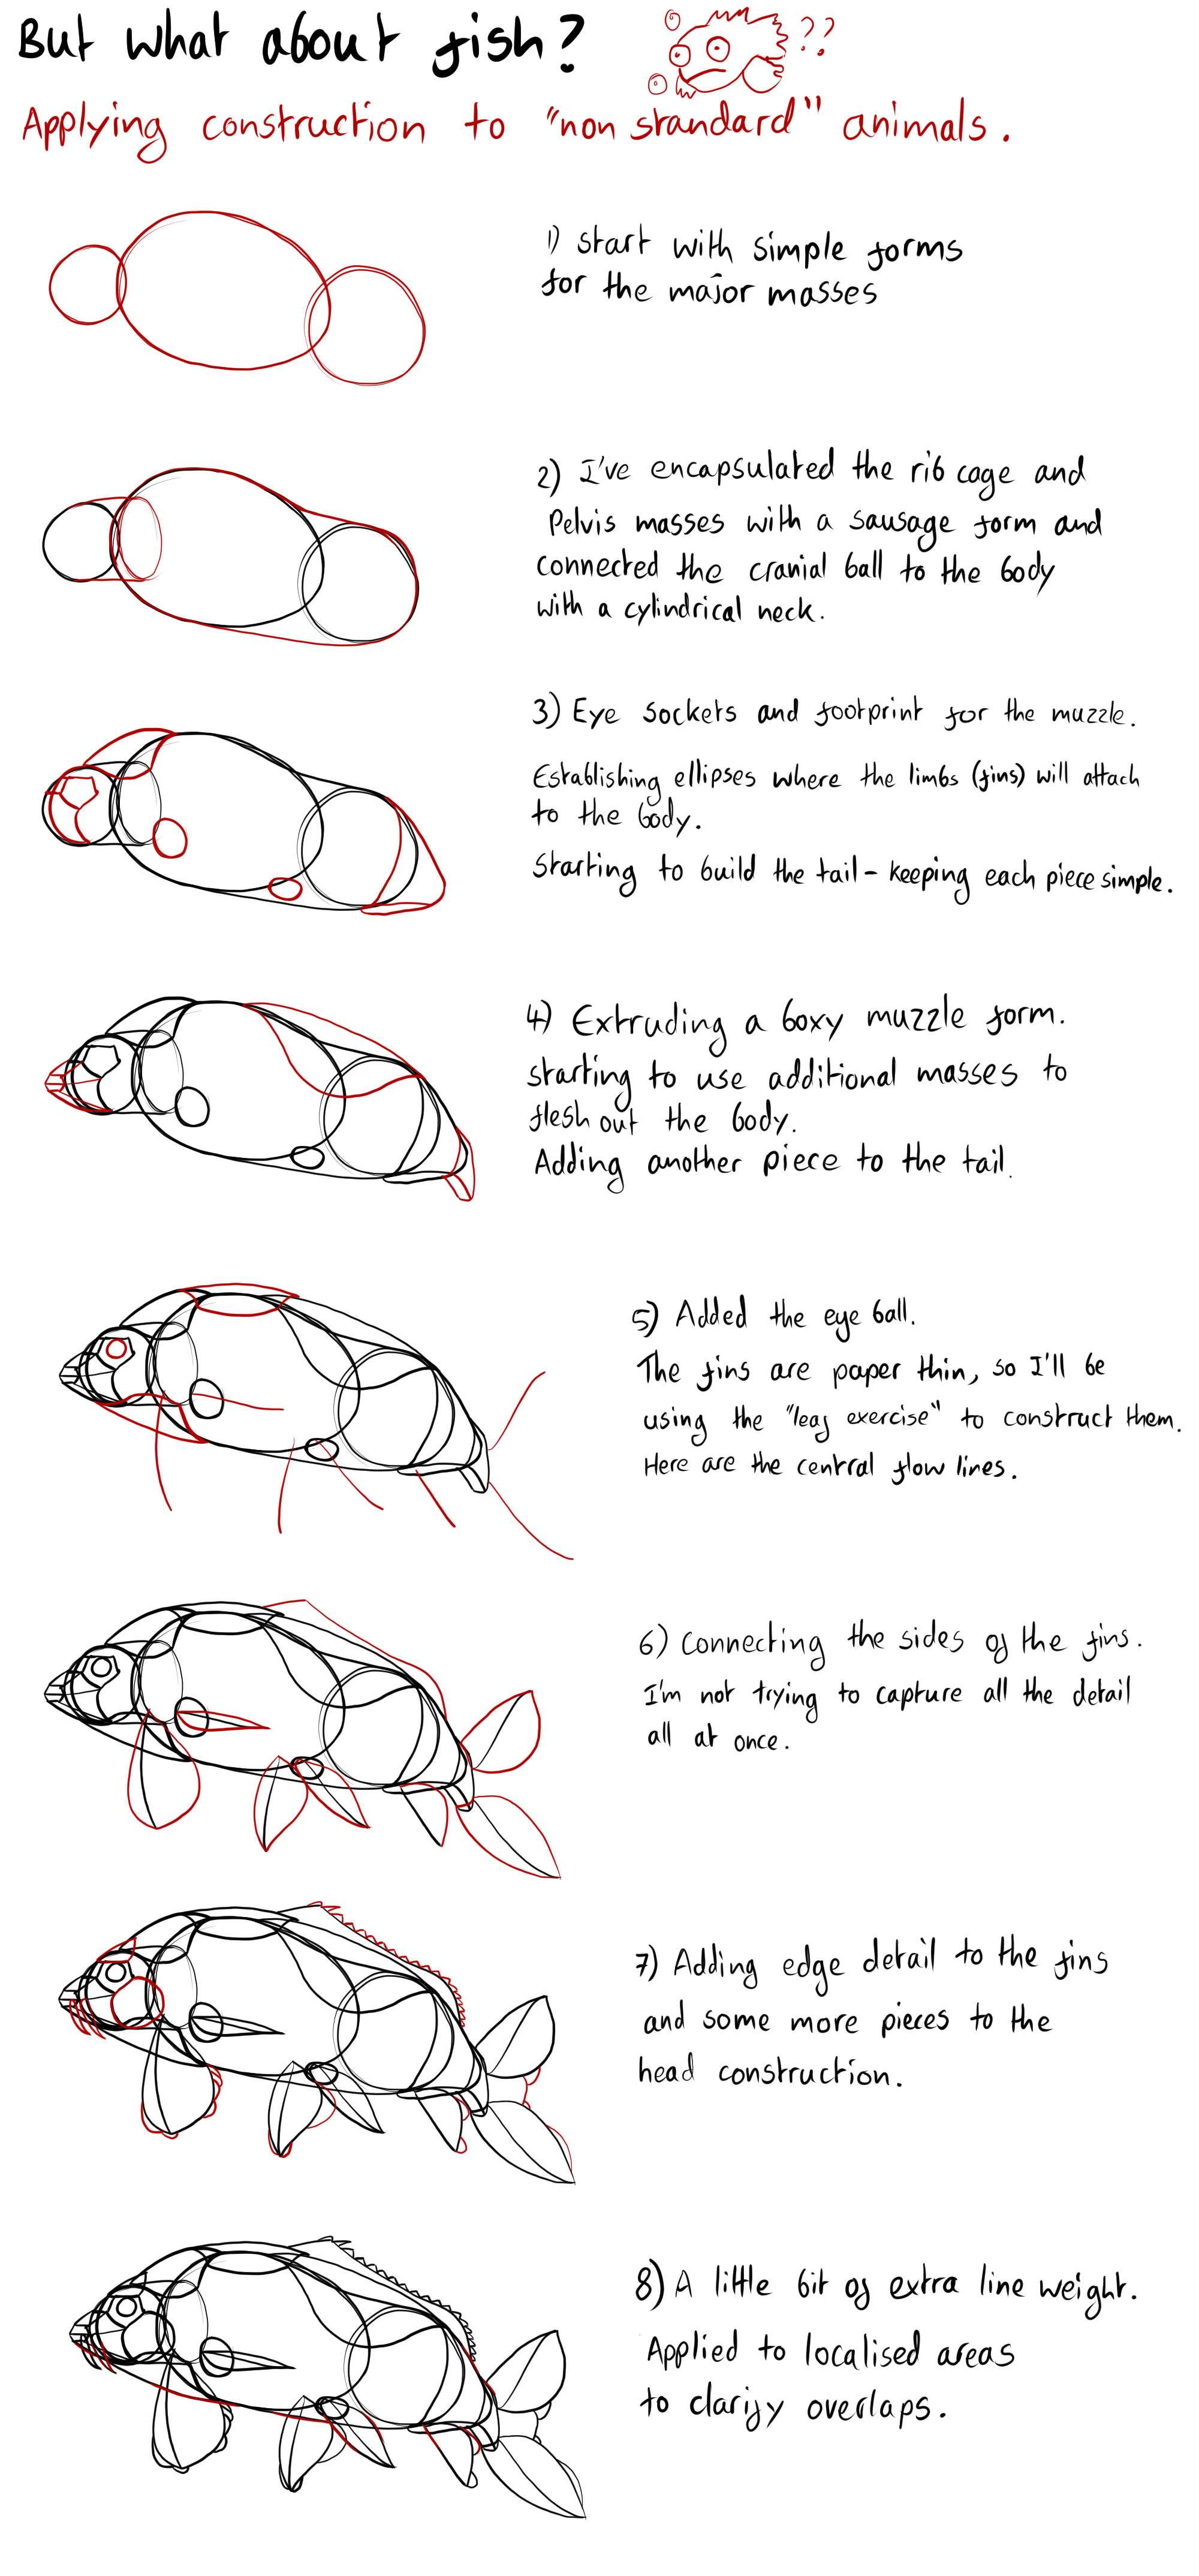 But what about fish?
??
Applying construction to "non standard" animals.
1) start with simple forms
for the major masses
2) I've encapsulated the rib cage and
Pelvis masses with a sausage form and
connected the cranial ball to the body
with a cylindrical neck.
3) Eye sockets and footprint for the muzzle.
Establishing ellipses where the limbs (fins) will attach
to the body.
Starting to build the tail - keeping each piece simple.
4) Extruding a boxy muzzle form.
starting to use additional masses to
flesh out the body.
Adding another piece to the tail.
5) Added the eye ball.
The fins are paper thin, so I'll be
using the "leaf exercise" to construct them.
Here are the central flow lines.
6) Connecting the sides of the fins.
I'm not trying to capture all the detail
all at once.
7) Adding edge detail to the fins
and some more pieces to the
head construction.
8) A little bit of extra line weight.
Applied to localised areas
to clarify overlaps.